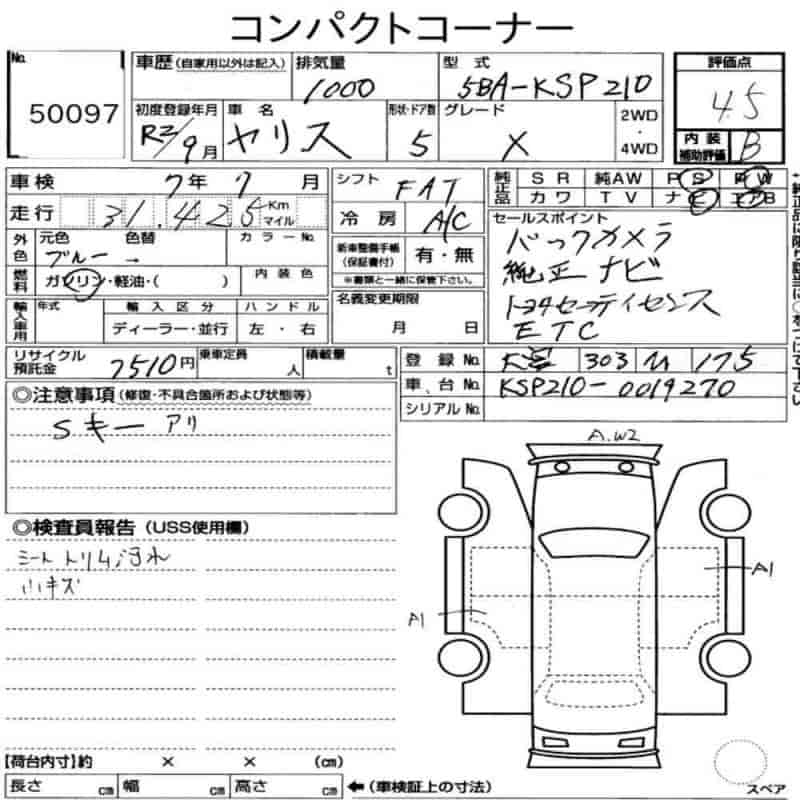 コンパクトコーナー
No. 50097
車歴(自家用以外は記入) 排気量 1000 型式 5BA-KSP210 評価点 4.5
初度登録年月 R2/9月 車名 ヤリス 形状・ドア数 5 グレード X 2WD・4WD 内装補助評価 B
車検 7年9月 シフト FAT 純正品 SR 純AW PS PW
走行 31,425 Km マイル 冷房 A/C カワ TV ナビ エアB
外色 元色 色替 カラーNo. ブルー → 新車整備手帳(保証書付) 有・無 セールスポイント
バックカメラ
純正ナビ
トヨタセーフティセンス
ETC
燃料 ガソリン・軽油・( ) 内装色 ※書類と一緒に保管下さい。
輸入車用 年式 輸入区分 ハンドル 名義変更期限
ディーラー・並行 左・右 月 日
リサイクル預託金 7510円 乗車定員 人 積載量 t 登録No. 303 175
車台No. KSP210-0019270
シリアルNo.
◎注意事項(修復・不具合箇所および状態等)
Sキー アリ
A.W2
◎検査員報告(USS使用欄)
シート トリム汚れ
小キズ
A1
A1
【荷台内寸】約 × × (cm)
長さ cm 幅 cm 高さ cm ←(車検証上の寸法)
スペア